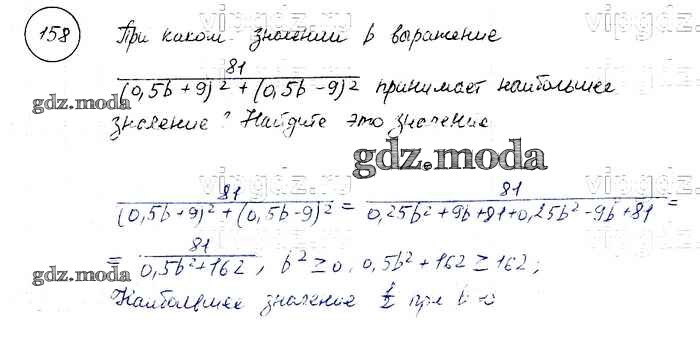 158 При каком значении b выражение
81
(0,5b+9)² + (0,5b-9)² принимает наибольшее
gdz.moda
значение? Найдите это значение
gdz.moda
81 / (0,5b+9)²+(0,5b-9)² = 81 / 0,25b²+9b+81+0,25b²-9b+81 =
= 81 / 0,5b²+162, b²≥0, 0,5b²+162≥162;
gdz.moda
Наибольшее значение 1/2 при b=0
vipgdz.ru
vipgdz.ru
vipgdz.ru